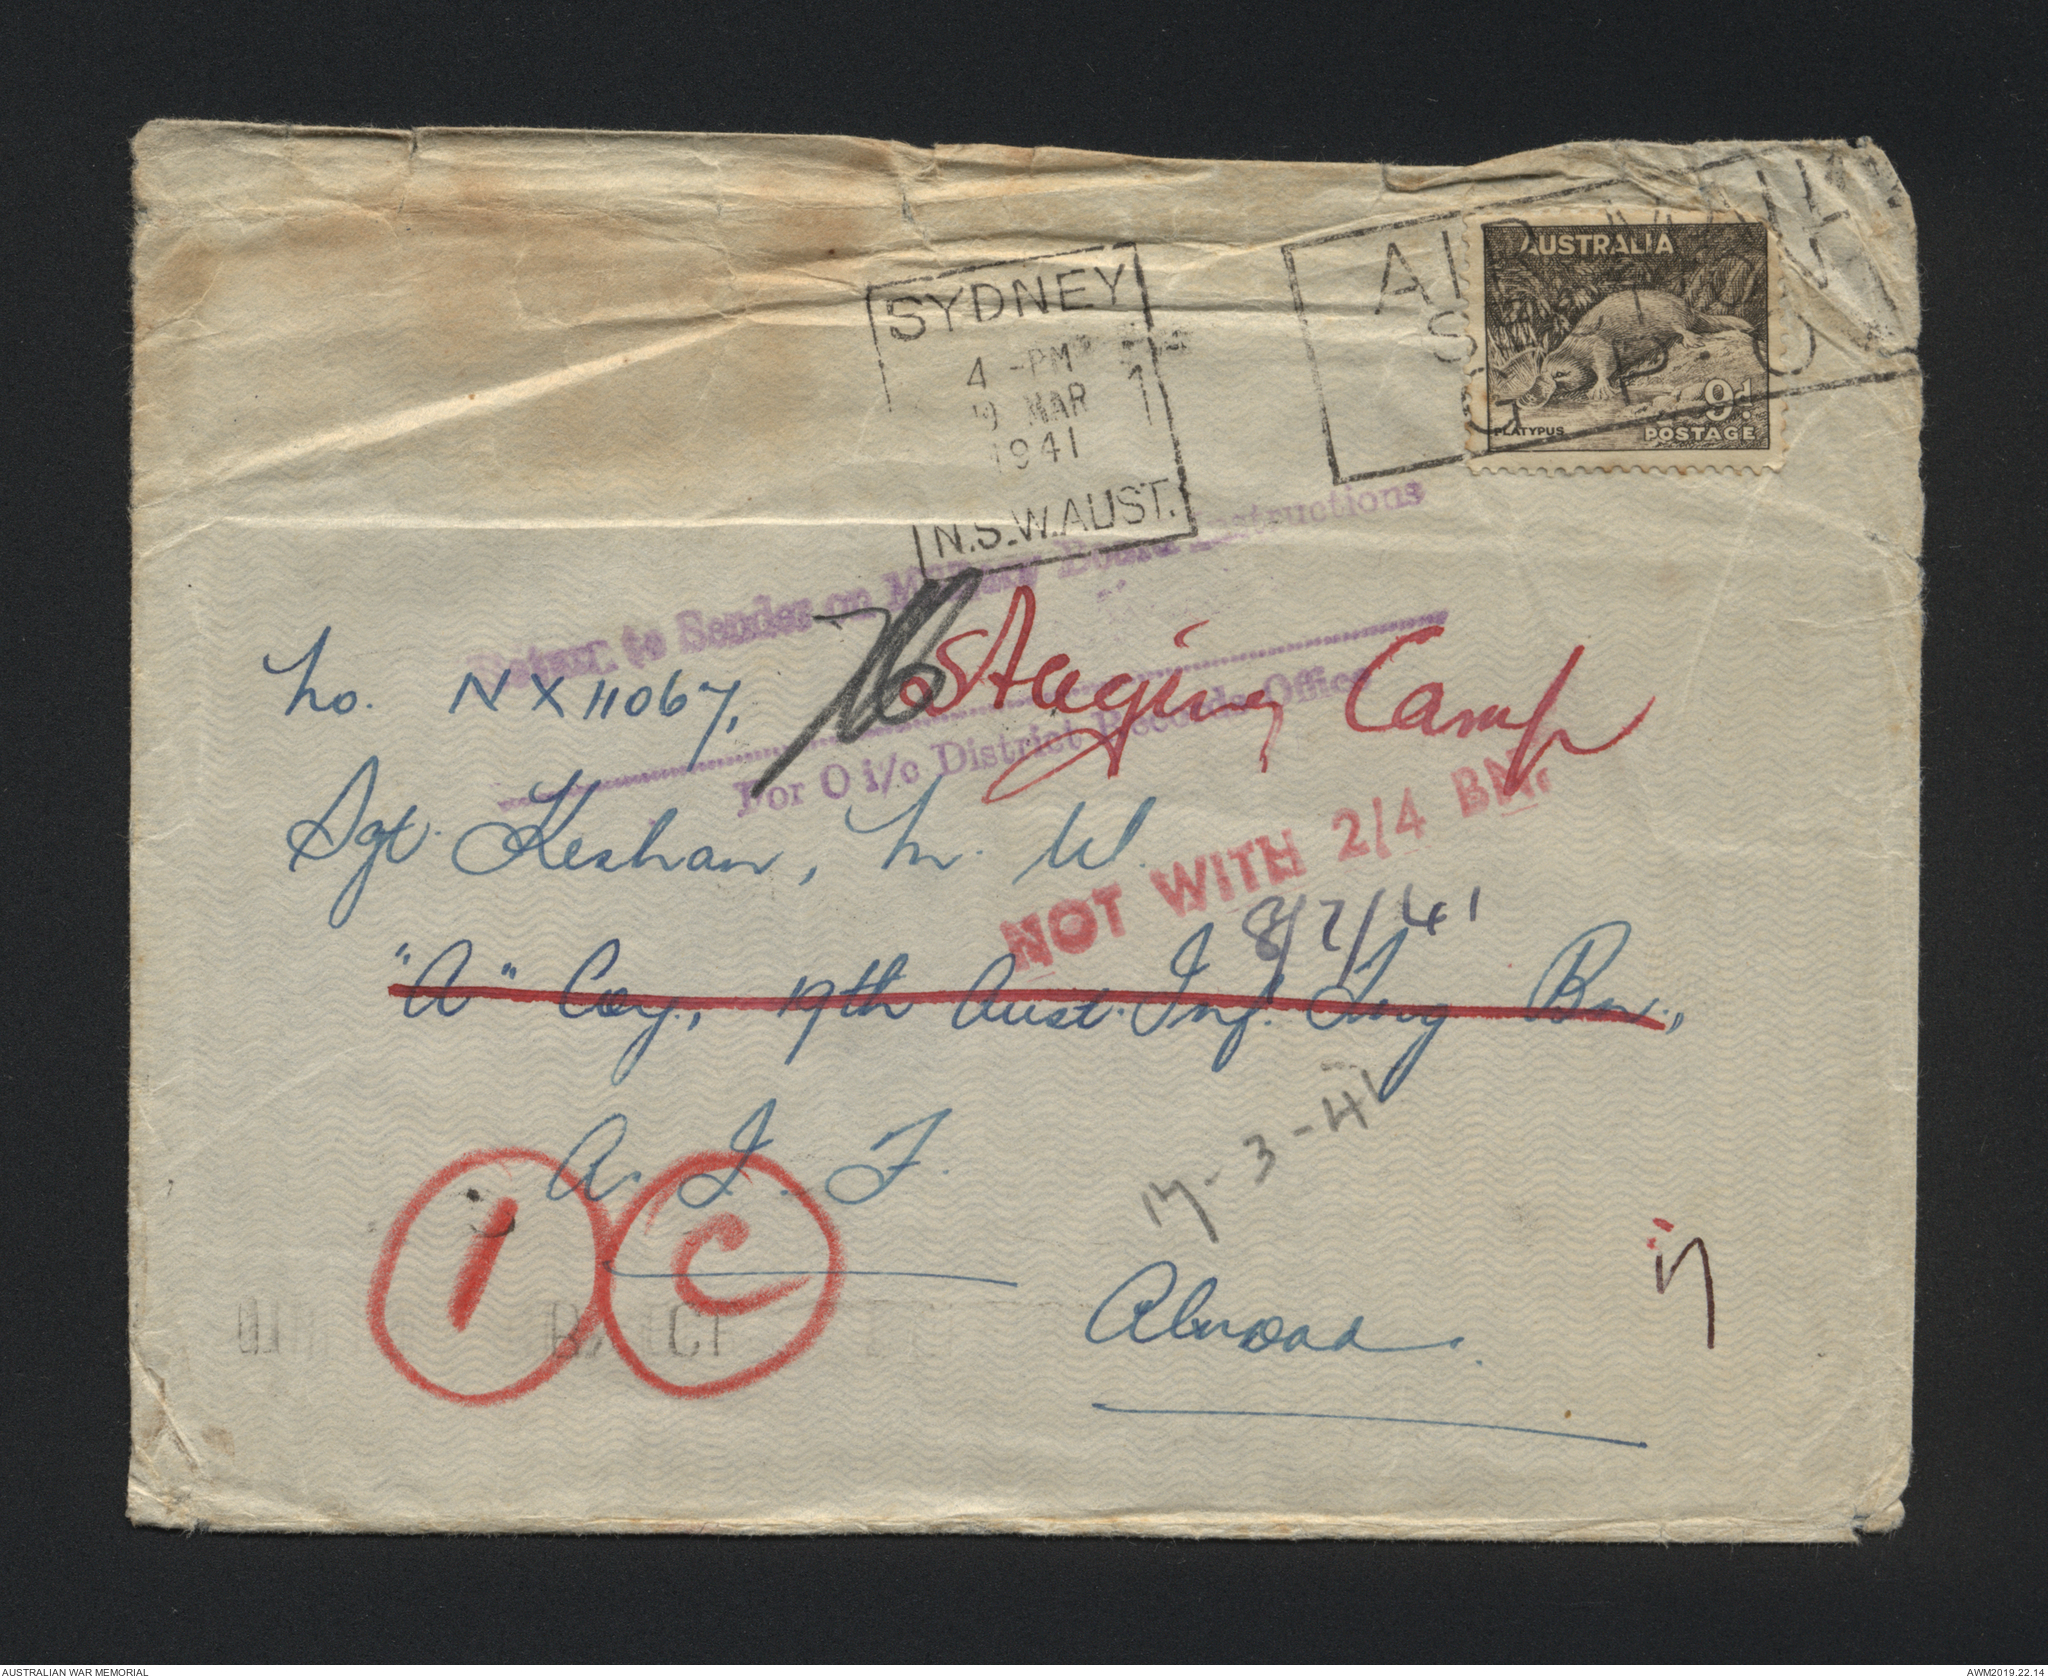 SYDNEY
4 -PM
9 MAR
1941
N.S.W.AUST.
1
AIR MAIL
AUSTRALIA
9d
PLATYPUS
POSTAGE
Return to Sender on Military Board Instructions
For O i/c District Records Office
Staging Camp
No. NX11067,
Sgt. Keshan, M. W.
NOT WITH 2/4 BN.
8/7/41
"A" Coy., 17th Aust. Inf. Trng Bn.,
A. I. F.
17-3-41
1
C
Abroad.
AUSTRALIAN WAR MEMORIAL
AWM2019.22.14